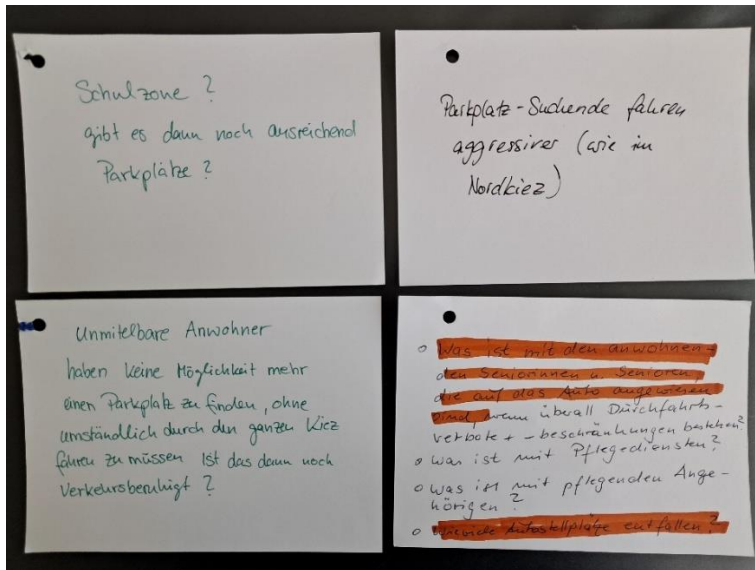 Schulzone ?
gibt es dann noch ausreichend
Parkplätze ?
Parkplatz-Suchende fahren
aggressiver (wie im
Nordkiez)
Unmitelbare Anwohner
haben keine Möglichkeit mehr
einen Parkplatz zu finden, ohne
umständlich durch den ganzen Kiez
fahren zu müssen Ist das dann noch
Verkehrsberuhigt ?
o Was ist mit den anwohnen-
den Seniorinnen u. Senioren,
die auf das Auto angewiesen
sind, wenn überall Durchfahrts-
verbote + -beschränkungen bestehen?
o Was ist mit Pflegediensten?
o Was ist mit pflegenden Ange-
hörigen?
o Wieviele Autostellplätze entfallen?